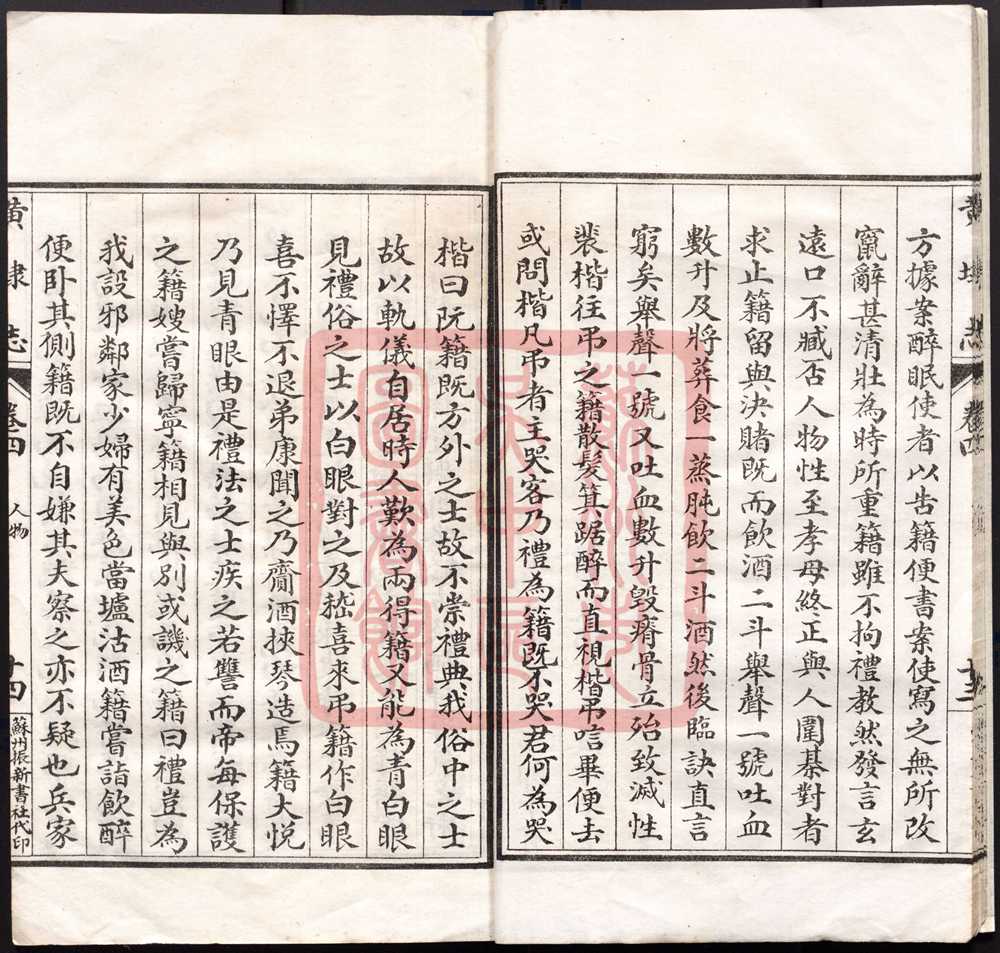 方據案醉眠使者以告籍便書案使寫之無所改
竄辭甚清壯為時所重籍雖不拘禮教然發言玄
遠口不臧否人物性至孝母終正與人圍棊對者
求止籍留與決賭既而飲酒二斗舉聲一號吐血
數升及將葬食一蒸肫飲二斗酒然後臨訣直言
窮矣舉聲一號又吐血數升毀瘠骨立殆致滅性
裴楷往弔之籍散髮箕踞醉而直視楷弔唁畢便去
或問楷凡弔者主哭客乃禮為籍既不哭君何為哭
楷曰阮籍既方外之士故不崇禮典我俗中之士
故以軌儀自居時人歎為兩得籍又能為青白眼
見禮俗之士以白眼對之及嵇喜來弔籍作白眼
喜不懌不退弟康聞之乃齎酒挾琴造焉籍大悅
乃見青眼由是禮法之士疾之若讐而帝每保護
之籍嫂嘗歸寧籍相見與別或譏之籍曰禮豈為
我設邪鄰家少婦有美色當壚沽酒籍嘗詣飲醉
便卧其側籍既不自嫌其夫察之亦不疑也兵家
黃埭志
卷四
人物
十四
蘇州振新書社代印